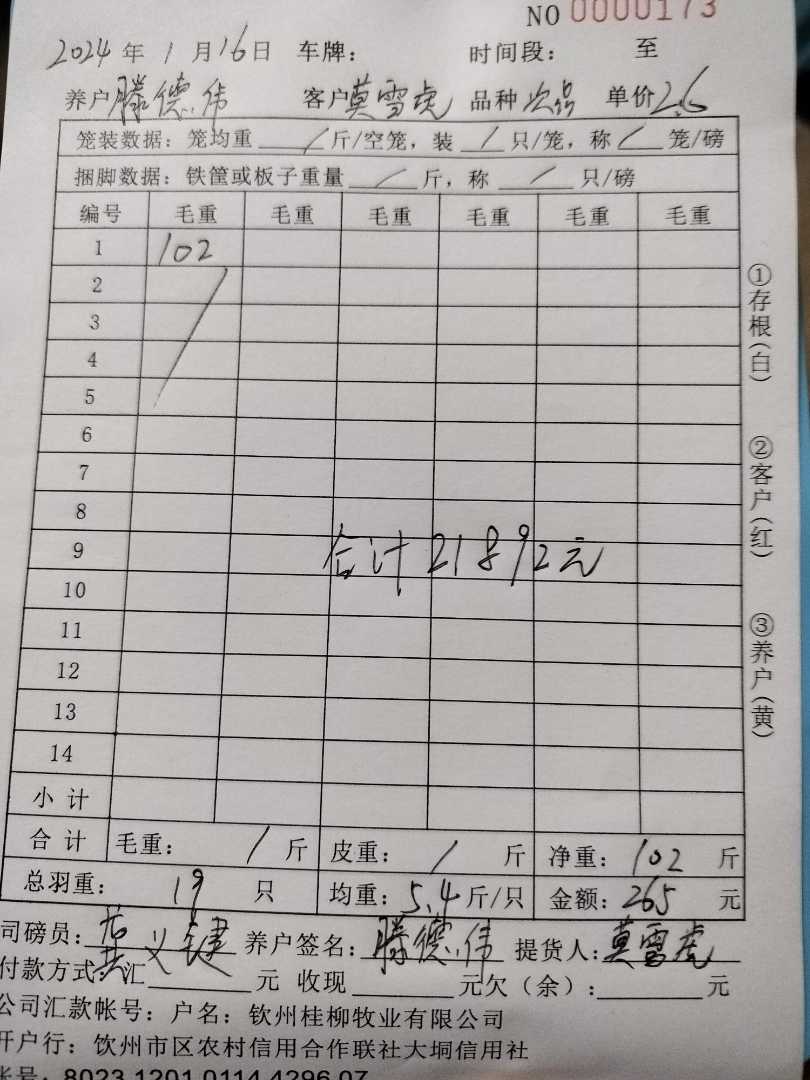 NO 0000173
2024 年 1 月 16 日 车牌： 时间段： 至
养户 滕德伟 客户 莫雪虎 品种 次品 单价 2.6
笼装数据：笼均重 / 斤/空笼，装 / 只/笼，称 / 笼/磅
捆脚数据：铁筐或板子重量 / 斤，称 / 只/磅
编号 毛重 毛重 毛重 毛重 毛重 毛重
1 102
2
3
4
5
6
7
8
9 合计 21892元
10
11
12
13
14
小 计
合 计 毛重： / 斤 皮重： / 斤 净重： 102 斤
总羽重： 19 只 均重： 5.4 斤/只 金额： 265 元
司磅员： 黄义建 养户签名： 滕德伟 提货人： 莫雪虎
付款方式：汇 元 收现 元欠（余）： 元
公司汇款帐号：户名：钦州桂柳牧业有限公司
开户行：饮州市区农村信用合作联社大垌信用社
帐号：8023 1201 0114 4296 07
①存根（白）
②客户（红）
③养户（黄）